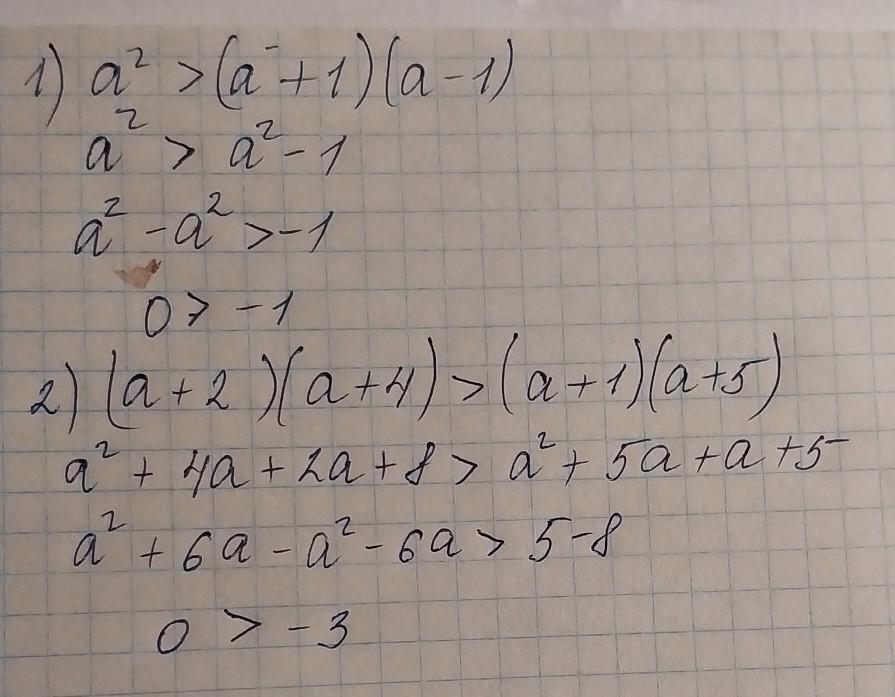 1) a² > (a + 1)(a - 1)
a² > a² - 1
a² - a² > -1
0 > -1
2) (a + 2)(a + 4) > (a + 1)(a + 5)
a² + 4a + 2a + 8 > a² + 5a + a + 5
a² + 6a - a² - 6a > 5 - 8
0 > -3